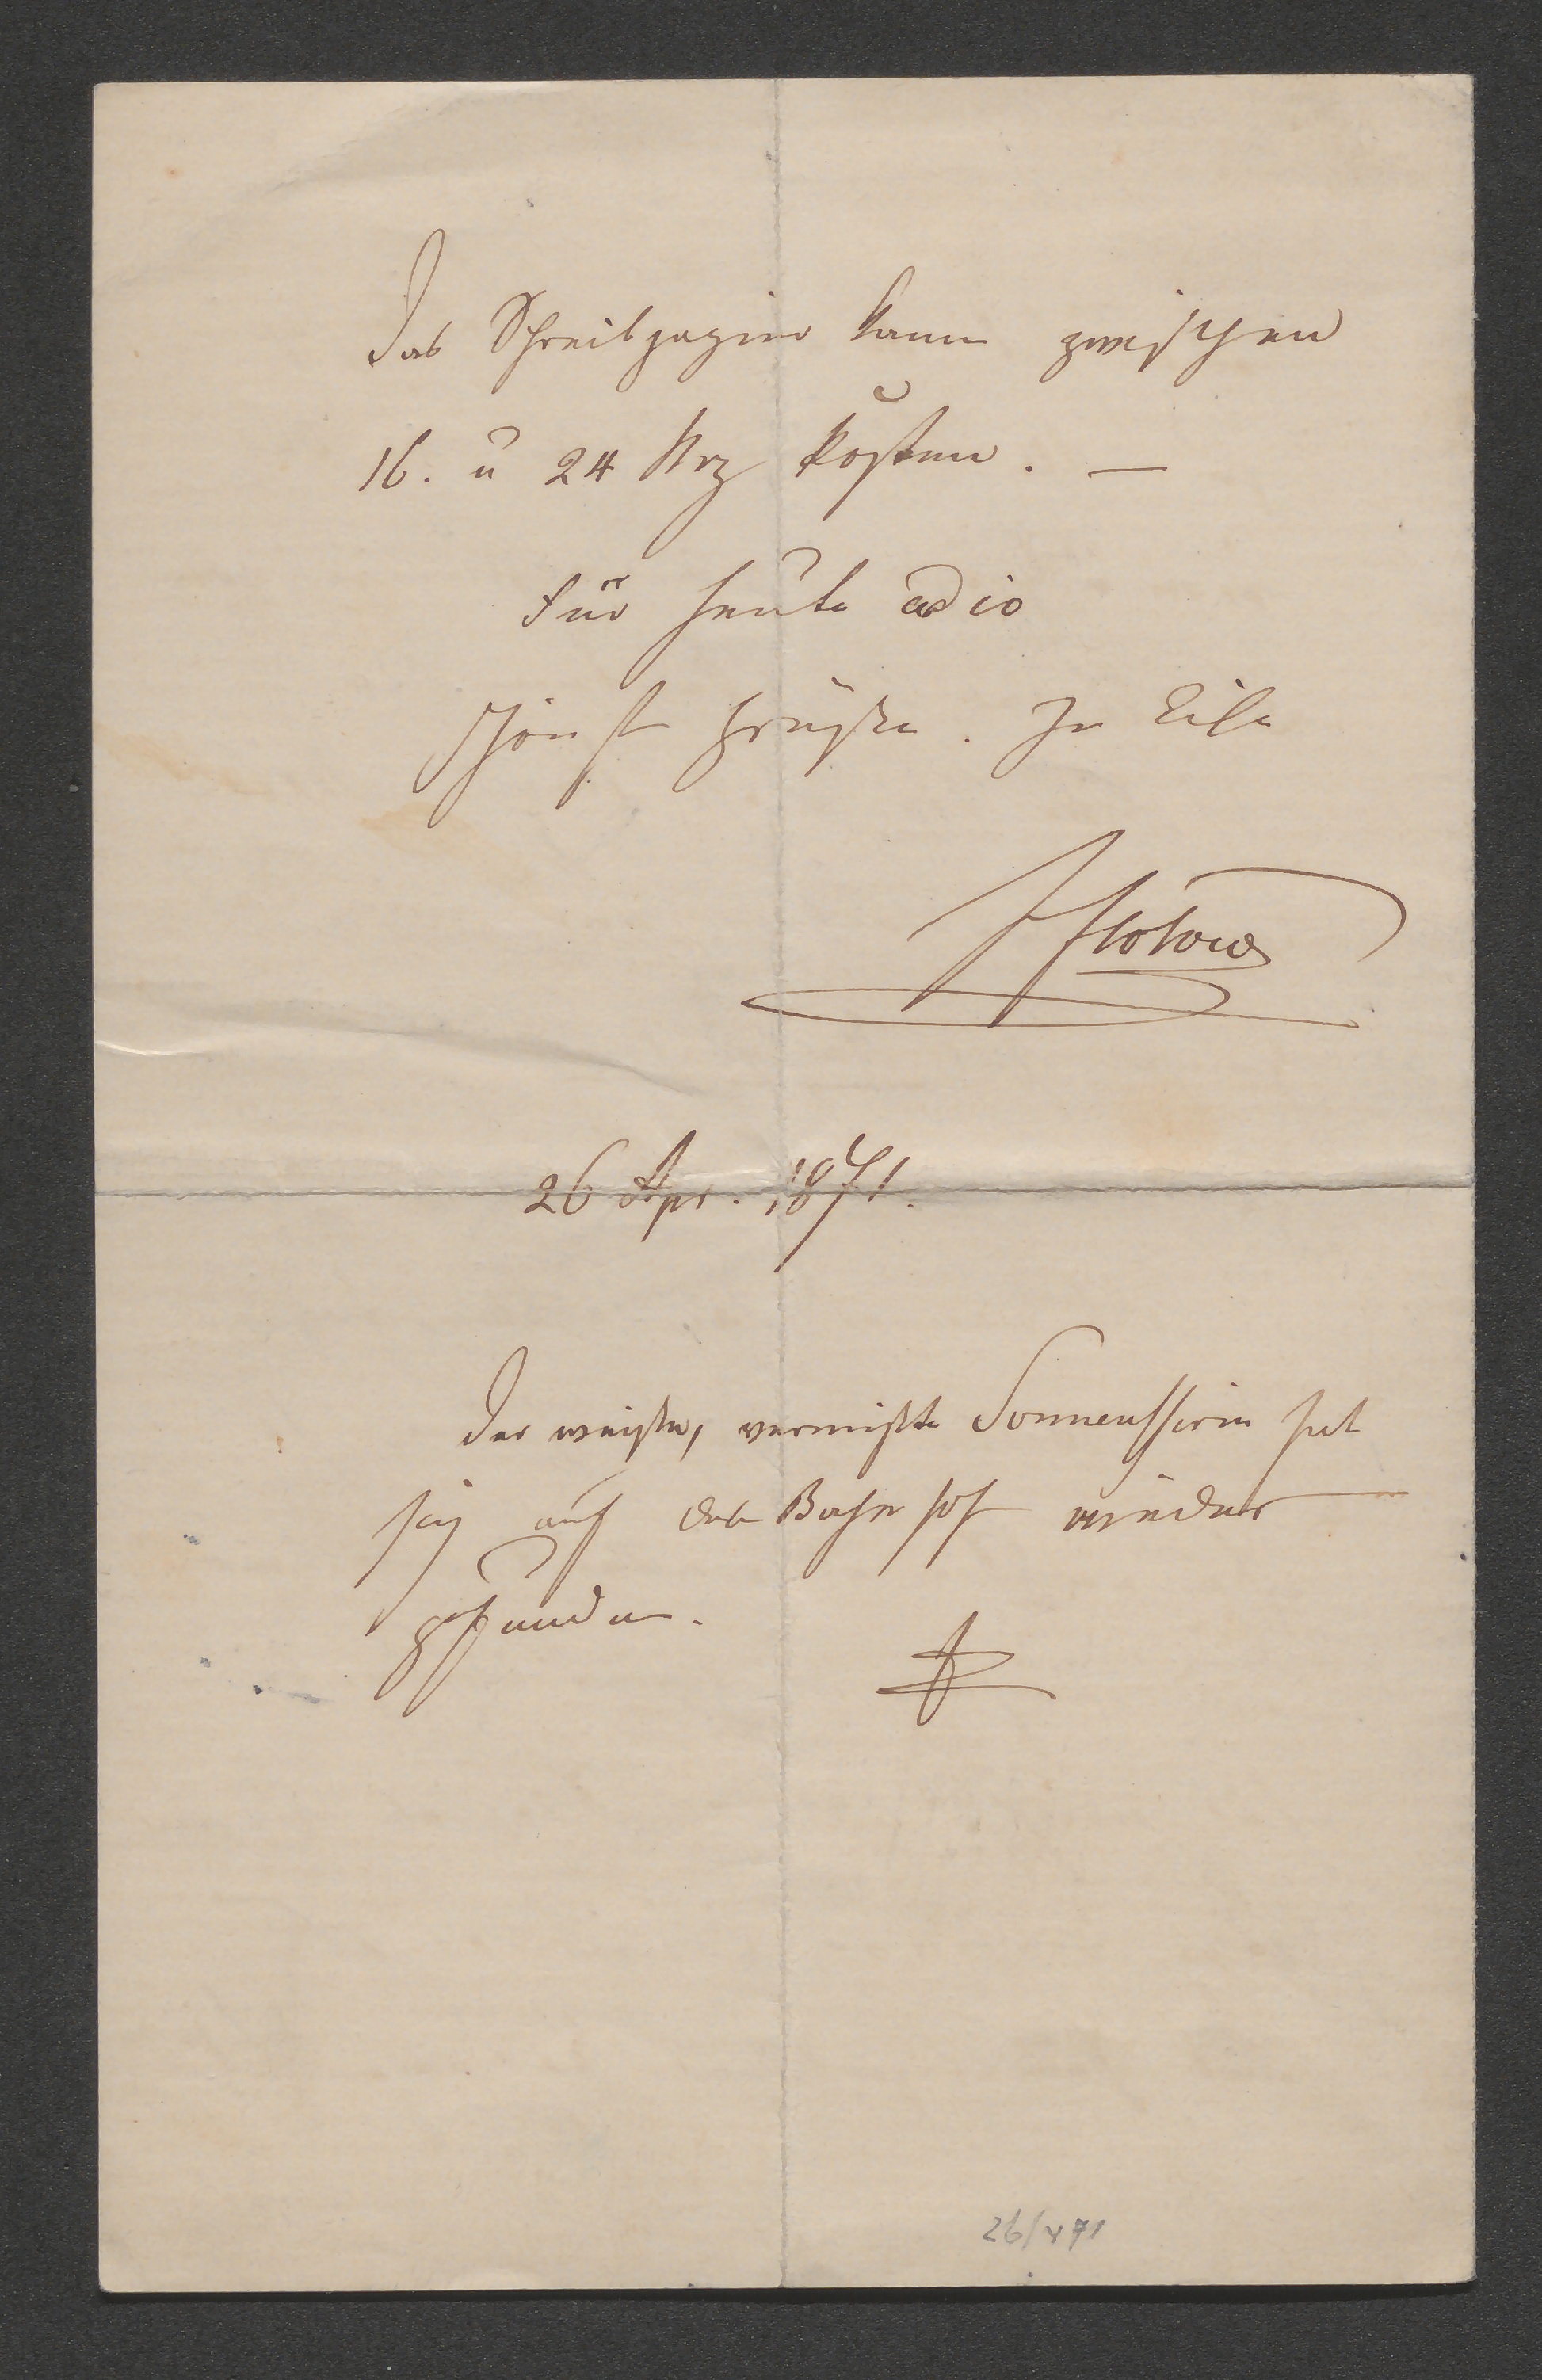 Das Schreibpapier kann zwischen
16. u 24 Krz kosten. —
Für heute adio
Schönste Grüße. In Eile
FFlotow
26 Apr. 1871.
Der weiße, vermißte Sonnenschirm hat
sich auf dem Bahnhof wieder
gefunden.
F